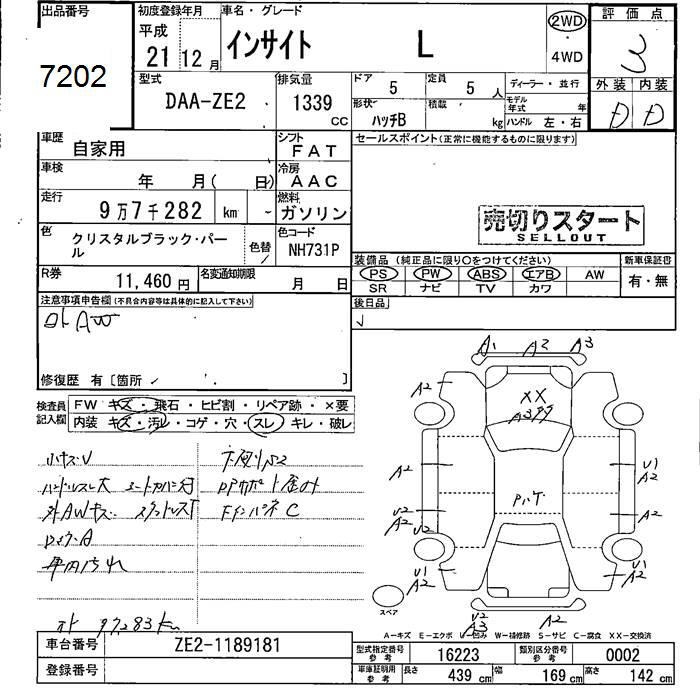 出品番号 初度登録年月 車名・グレード 評価点
平成 インサイト L 2WD 3
7202 21 12月 4WD
型式 排気量 ドア 定員 ディーラー・並行 外装 内装
DAA-ZE2 1339 CC 5 5人 モデル年式 年 D D
形状 ハッチB 積載 kg ハンドル 左・右
車歴 自家用 シフト FAT セールスポイント(正常に機能するものに限ります)
車検 年 月( 日) 冷房 AAC
走行 9万7千282 km ~ 燃料 ガソリン 売切りスタート
SELLOUT
色 クリスタルブラック・パール 色替 色コード NH731P
装備品(純正品に限り〇をつけてください) 新車保証書
PS PW ABS エアB AW 有・無
SR ナビ TV カワ
R券 11,460円 名変通知期限 月 日
後日品
注意事項申告欄(不具合内容等は具体的に記入して下さい)
外AW
修復歴 有〔箇所 〕
A1 A2 A3
A2 XX
検査員記入欄 FW キズ・飛石・ヒビ割・リペア跡・×要
内装 キズ・汚レ・コゲ・穴・スレ・キレ・破レ
小キズV
ハンドルスレ大
A2 U1 A2
外AWキズ FインパネC
A2
車内汚れ
U1 A2 A2
スペア
U2 A3 A2
97283km
A-キズ E-エクボ U-凹み W-補修跡 S-サビ C-腐食 XX-交換済
車台番号 ZE2-1189181
型式指定番号 参考 16223 類別区分番号 参考 0002
登録番号
車庫証明用 参考 長さ 439cm 幅 169cm 高さ 142cm